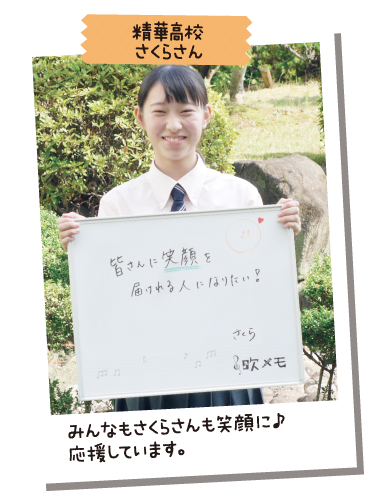 精華高校
さくらさん
皆さんに笑顔を
届けれる人になりたい!
さくら
吹メモ
みんなもさくらさんも笑顔に♪
応援しています。